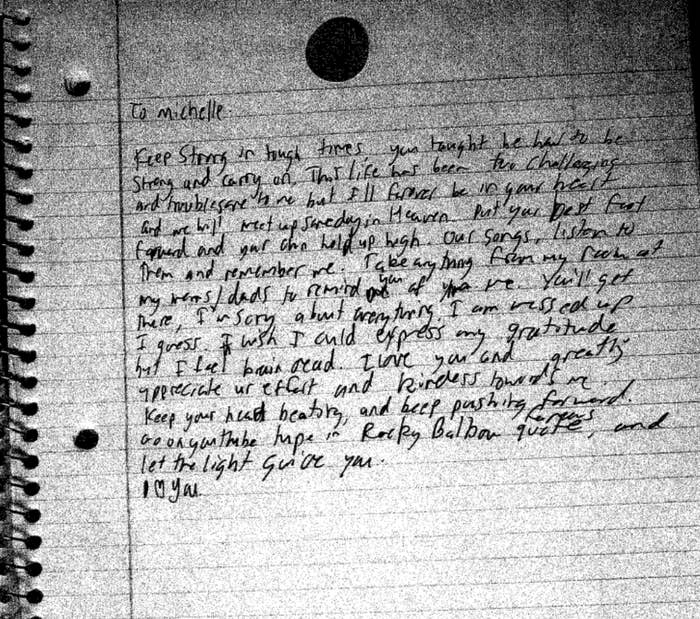 To Michelle
Keep Strong in tough times you taught me how to be
Strong and carry on. This life has been too challenging
and troublesome to me but I'll forever be in your heart
and we will meet up someday in Heaven. Put your best foot
forward and your chin held up high. Our songs, listen to
them and remember me. Take anything from my room at
my moms/dads to remind you of me. You'll get
there, I'm sorry about everything. I am messed up
I guess. I wish I could express my gratitude
but I feel brain dead. I love you and greatly
appreciate ur effort and kindess towards me.
Keep your heart beating, and keep pushing forward.
Go on youtube type in Rocky Balboa famous quote, and
let the light guide you.
I ♡ You.